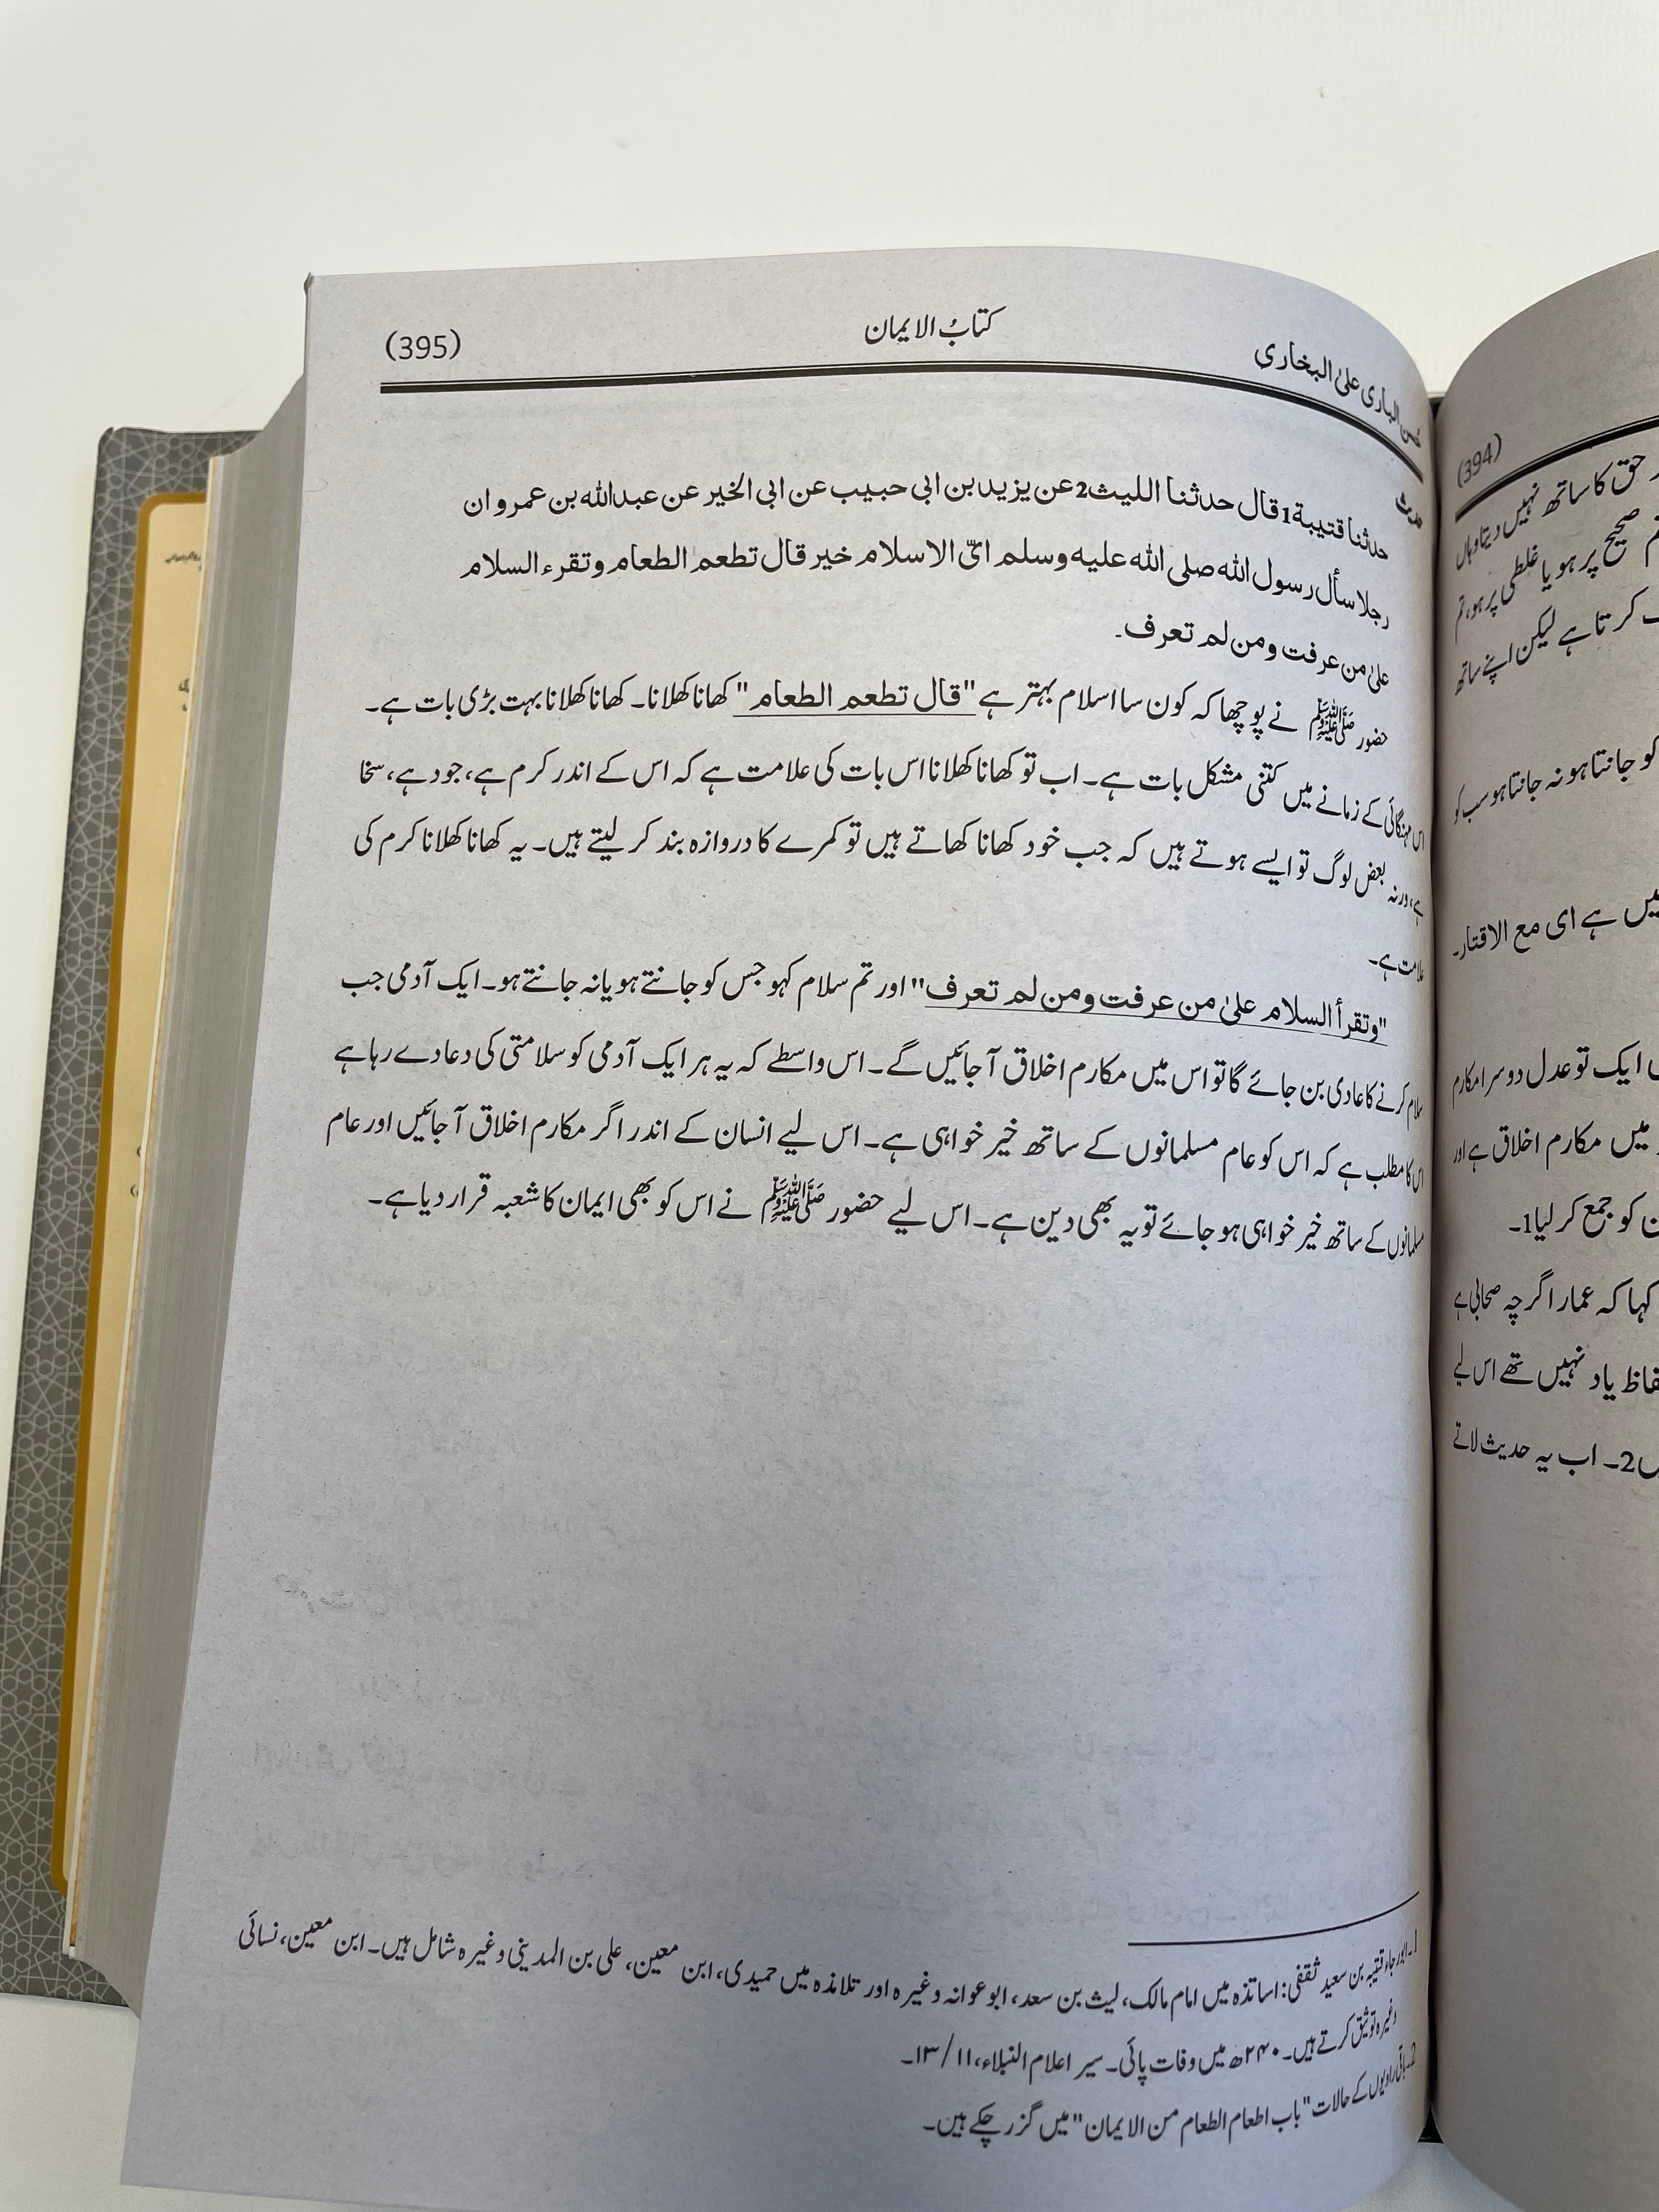 حُسن الباری علیٰ البخاری کتابُ الایمان (395)
حدیث
حدثنا قتیبة1 قال حدثنا اللیث2 عن یزید بن ابی حبیب عن ابی الخیر عن عبدالله بن عمرو ان
رجلا سأل رسول الله صلی الله علیه وسلم ایّ الاسلام خیر قال تطعم الطعام وتقرء السلام
علیٰ من عرفت ومن لم تعرف۔
حضور ﷺ نے پوچھا کہ کون سا اسلام بہتر ہے "قال تطعم الطعام" کھانا کھلانا۔ کھانا کھلانا بہت بڑی بات ہے۔
اس مہنگائی کے زمانے میں کتنی مشکل بات ہے۔ اب تو کھانا کھلانا اس بات کی علامت ہے کہ اس کے اندر کرم ہے، جود ہے، سخا
ہے، ورنہ بعض لوگ تو ایسے ہوتے ہیں کہ جب خود کھانا کھاتے ہیں تو کمرے کا دروازہ بند کر لیتے ہیں۔ یہ کھانا کھلانا کرم کی
علامت ہے۔
"وتقرأ السلام علیٰ من عرفت ومن لم تعرف" اور تم سلام کہو جس کو جانتے ہو یا نہ جانتے ہو۔ ایک آدمی جب
سلام کرنے کا عادی بن جائے گا تو اس میں مکارم اخلاق آ جائیں گے۔ اس واسطے کہ یہ ہر ایک آدمی کو سلامتی کی دعا دے رہا ہے
اس کا مطلب ہے کہ اس کو عام مسلمانوں کے ساتھ خیر خواہی ہے۔ اس لیے انسان کے اندر اگر مکارم اخلاق آ جائیں اور عام
مسلمانوں کے ساتھ خیر خواہی ہو جائے تو یہ بھی دین ہے۔ اس لیے حضور ﷺ نے اس کو بھی ایمان کا شعبہ قرار دیا ہے۔
1۔ ابو رجاء قتیبہ بن سعید ثقفی: اساتذہ میں امام مالک، لیث بن سعد، ابو عوانہ وغیرہ اور تلامذہ میں حمیدی، ابن معین، علی بن المدینی وغیرہ شامل ہیں۔ ابن معین، نسائی
وغیرہ توثیق کرتے ہیں۔ ۲۴۰ھ میں وفات پائی۔ سیر اعلام النبلاء، ۱۱/ ۱۳۔
2۔ باقی راویوں کے حالات "باب اطعام الطعام من الایمان" میں گزر چکے ہیں۔
(394)
حق کا ساتھ نہیں دیتا وہاں
صحیح پر ہو یا غلطی پر ہو، تم
کرتا ہے لیکن اپنے ساتھ
کو جانتا ہو نہ جانتا ہو سب کو
میں ہے ای مع الاقتار۔
ایک تو عدل دوسرا مکارم
میں مکارم اخلاق ہے اور
کو جمع کر لیا1۔
کہا کہ عمار اگرچہ صحابی ہے
یاد نہیں تھے اس لیے
2۔ اب یہ حدیث لاتے